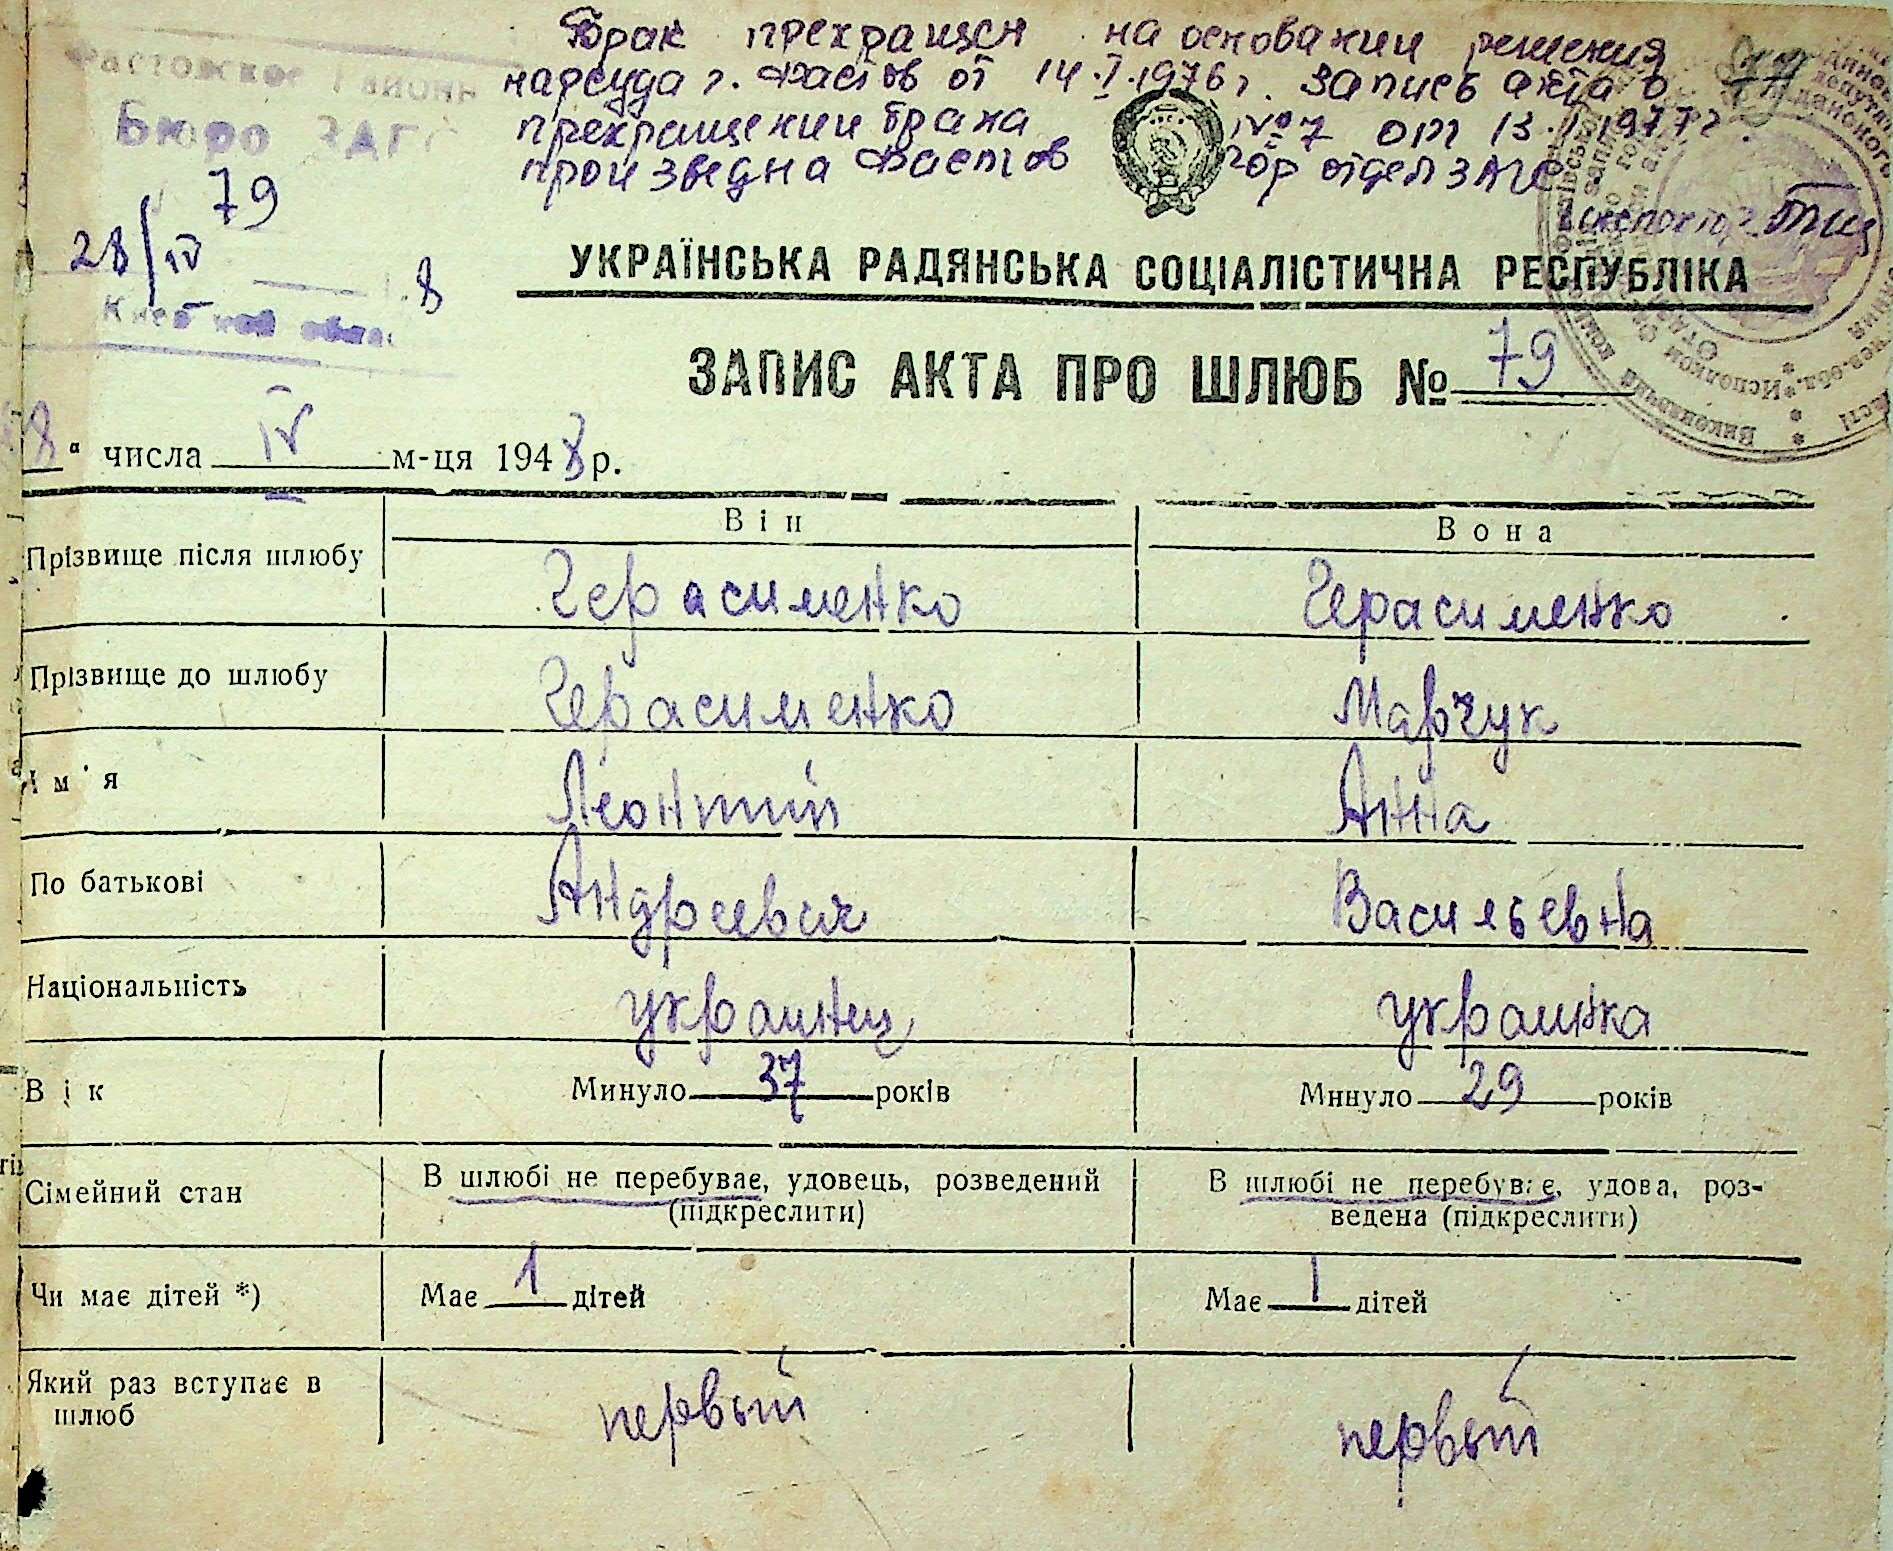 Брак прекращен на основании решения
нарсуда г. Фастов от 14.I.1976г. Запись акта о
прекращении брака №7 от 13.I.1977г.
произведена Фастов гор отдел ЗАГС
инспектор
Фастовское Районн
Бюро ЗАГС
79
28/IV 8
Киевской облас
УКРАЇНСЬКА РАДЯНСЬКА СОЦІАЛІСТИЧНА РЕСПУБЛІКА
ЗАПИС АКТА ПРО ШЛЮБ № 79
8" числа IV м-ця 1948 р.
Він Вона
Прізвище після шлюбу Герасименко Герасименко
Прізвище до шлюбу Герасименко Марчук
Ім'я Леонтий Анна
По батькові Андреевич Васильевна
Національність украинец украинка
Вік Минуло 37 років Минуло 29 років
Сімейний стан В шлюбі не перебуває, удовець, розведений В шлюбі не перебуває, удова, роз-
(підкреслити) ведена (підкреслити)
Чи має дітей *) Має 1 дітей Має 1 дітей
Який раз вступає в
шлюб первый первый